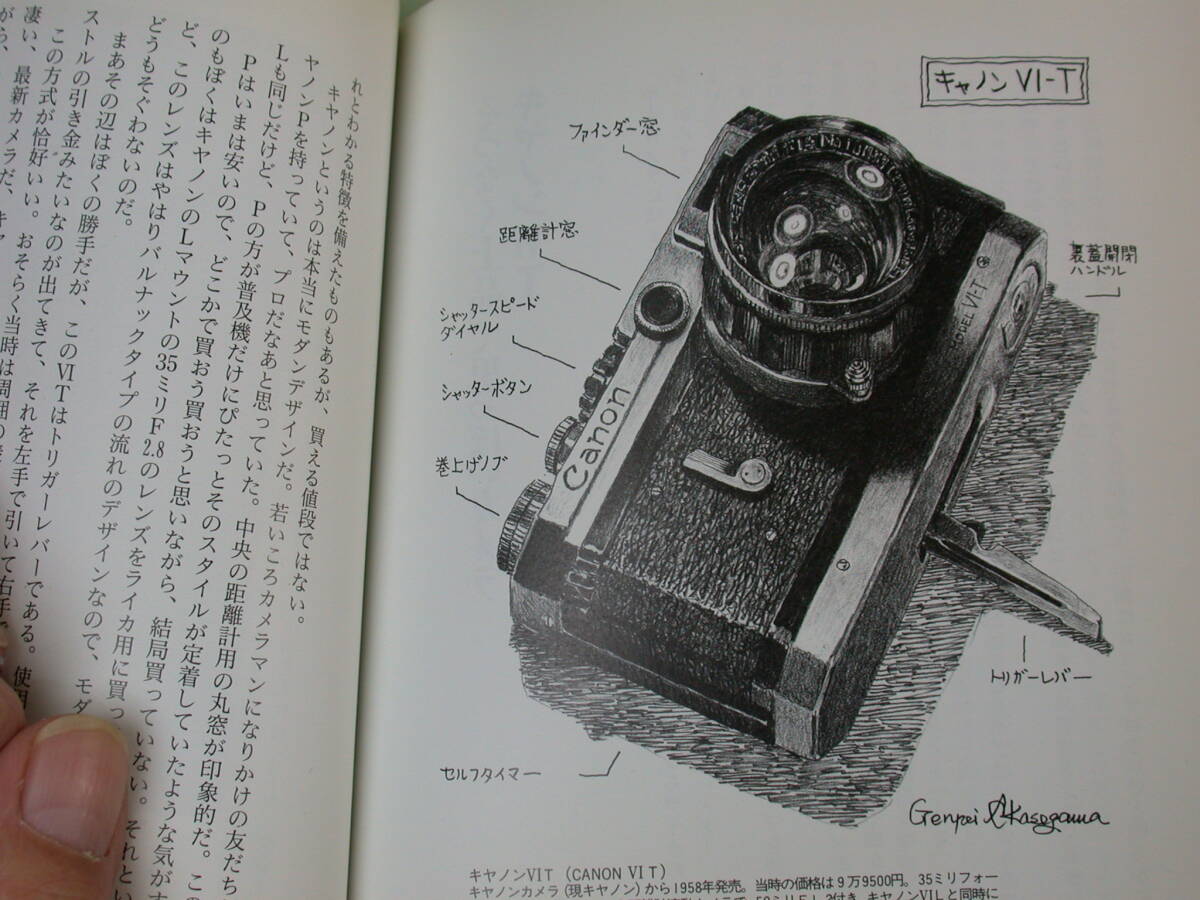 れとわかる特徴を備えたものもあるが、買える値段ではない。
キヤノンというのは本当にモダンデザインだ。若いころカメラマンになりかけの友だち
ヤノンPを持っていて、プロだなあと思っていた。中央の距離計用の丸窓が印象的だ。この
Lも同じだけど、Pの方が普及機だけにぴたっとそのスタイルが定着していたような気がす
Pはいまは安いので、どこかで買おう買おうと思いながら、結局買っていない。それとい
のもぼくはキヤノンのLマウントの35ミリF2.8のレンズをライカ用に買っ
ど、このレンズはやはりバルナックタイプの流れのデザインなので、モダ
どうもそぐわないのだ。
まあその辺はぼくの勝手だが、このVITはトリガーレバーである。使用
ストルの引き金みたいなのが出てきて、それを左手で引いて右手で
この方式が恰好いい。おそらく当時は周囲の
凄い、最新カメラだ、キヤ
がら、
キャノン VI-T
ファインダー窓
距離計窓
シャッタースピード
ダイヤル
シャッターボタン
巻上げノブ
裏蓋開閉
ハンドル
トリガーレバー
セルフタイマー
Canon
MODEL VI-T
Genpei Akasegawa
キヤノンVIT(CANON VI T)
キヤノンカメラ(現キヤノン)から1958年発売。当時の価格は9万9500円。35ミリフォー
キヤノンVILと同時に